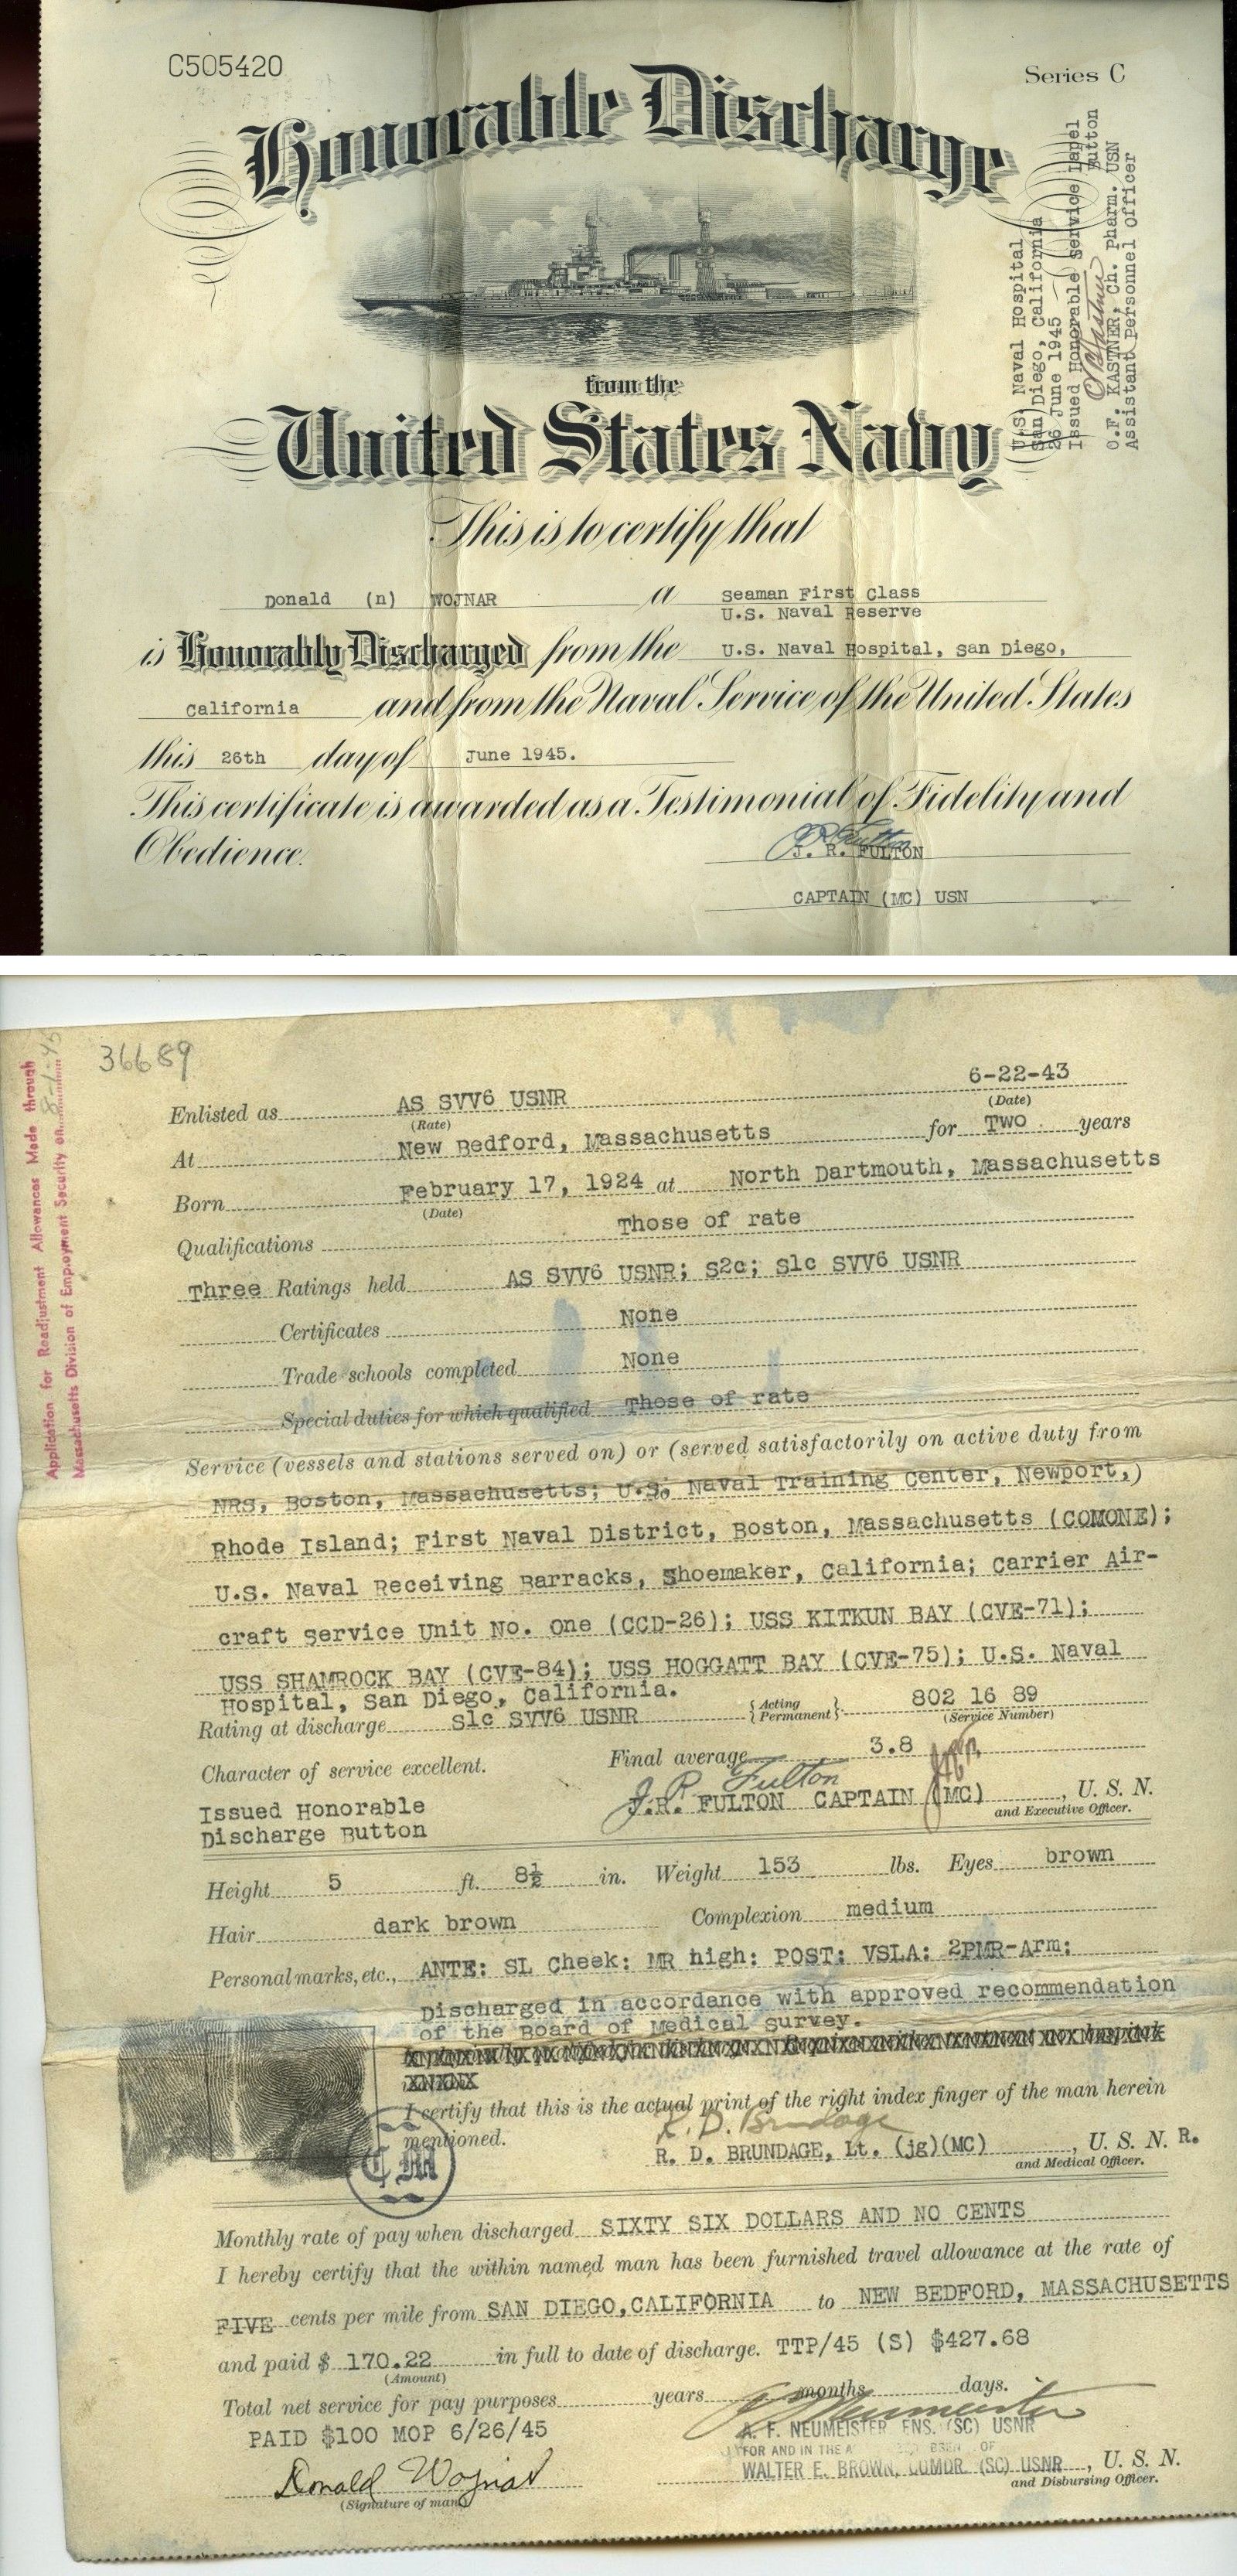 C505420
Series C
Honorable Discharge
U.S. Naval Hospital
San Diego, California
26 June 1945
Issued Honorable Service Lapel
Button
O.F. KASTNER, Ch. Pharm. USN
Assistant Personnel Officer
from the
United States Navy
This is to certify that
Donald (n) WOJNAR a Seaman First Class
U.S. Naval Reserve
is Honorably Discharged from the U.S. Naval Hospital, San Diego,
California and from the Naval Service of the United States
this 26th day of June 1945.
This certificate is awarded as a Testimonial of Fidelity and
Obedience.
J. R. FULTON
CAPTAIN (MC) USN
Application for Readjustment Allowances Made through
Massachusetts Division of Employment Security on 8-1-45
36689
6-22-43
Enlisted as AS SVV6 USNR (Date)
(Rate)
At New Bedford, Massachusetts for Two years
Born February 17, 1924 at North Dartmouth, Massachusetts
(Date)
Qualifications Those of rate
Three Ratings held AS SVV6 USNR; S2c; S1c SVV6 USNR
Certificates None
Trade schools completed None
Special duties for which qualified Those of rate
Service (vessels and stations served on) or (served satisfactorily on active duty from
NRS, Boston, Massachusetts; U.S. Naval Training Center, Newport,)
Rhode Island; First Naval District, Boston, Massachusetts (COMONE);
U.S. Naval Receiving Barracks, Shoemaker, California; Carrier Air-
craft Service Unit No. One (CCD-26); USS KITKUN BAY (CVE-71);
USS SHAMROCK BAY (CVE-84); USS HOGGATT BAY (CVE-75); U.S. Naval
Hospital, San Diego, California.
Rating at discharge S1c SVV6 USNR {Acting Permanent} 802 16 89
(Service Number)
Character of service excellent. Final average 3.8
J. R. Fulton
Issued Honorable
Discharge Button
J.R. FULTON CAPTAIN (MC), U. S. N.
and Executive Officer.
Height 5 ft. 8½ in. Weight 153 lbs. Eyes brown
Hair dark brown Complexion medium
Personal marks, etc., ANTE: SL Cheek: MR high: POST: VSLA: 2PMR-Arm:
Discharged in accordance with approved recommendation
of the Board of Medical Survey.
I certify that this is the actual print of the right index finger of the man herein
mentioned.
R. D. Brundage
R. D. BRUNDAGE, Lt. (jg)(MC), U. S. N. R.
and Medical Officer.
CM
Monthly rate of pay when discharged SIXTY SIX DOLLARS AND NO CENTS
I hereby certify that the within named man has been furnished travel allowance at the rate of
FIVE cents per mile from SAN DIEGO, CALIFORNIA to NEW BEDFORD, MASSACHUSETTS
and paid $ 170.22 in full to date of discharge. TTP/45 (S) $427.68
(Amount)
Total net service for pay purposes years months days.
PAID $100 MOP 6/26/45
F. NEUMEISTER ENS. (SC) USNR
FOR AND IN THE OF
WALTER E. BROWN, COMDR. (SC) USNR, U. S. N.
and Disbursing Officer.
Donald Wojnar
(Signature of man)